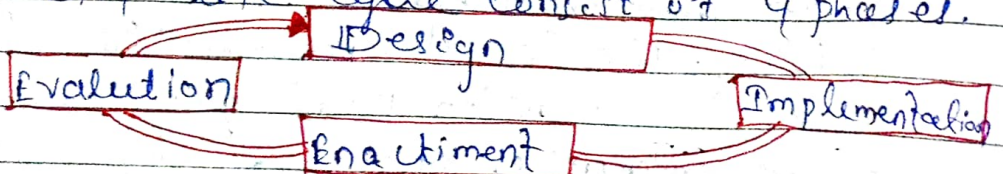 Cycle consist of 4 phases.
Design
Evalution
Implementation
Enactiment